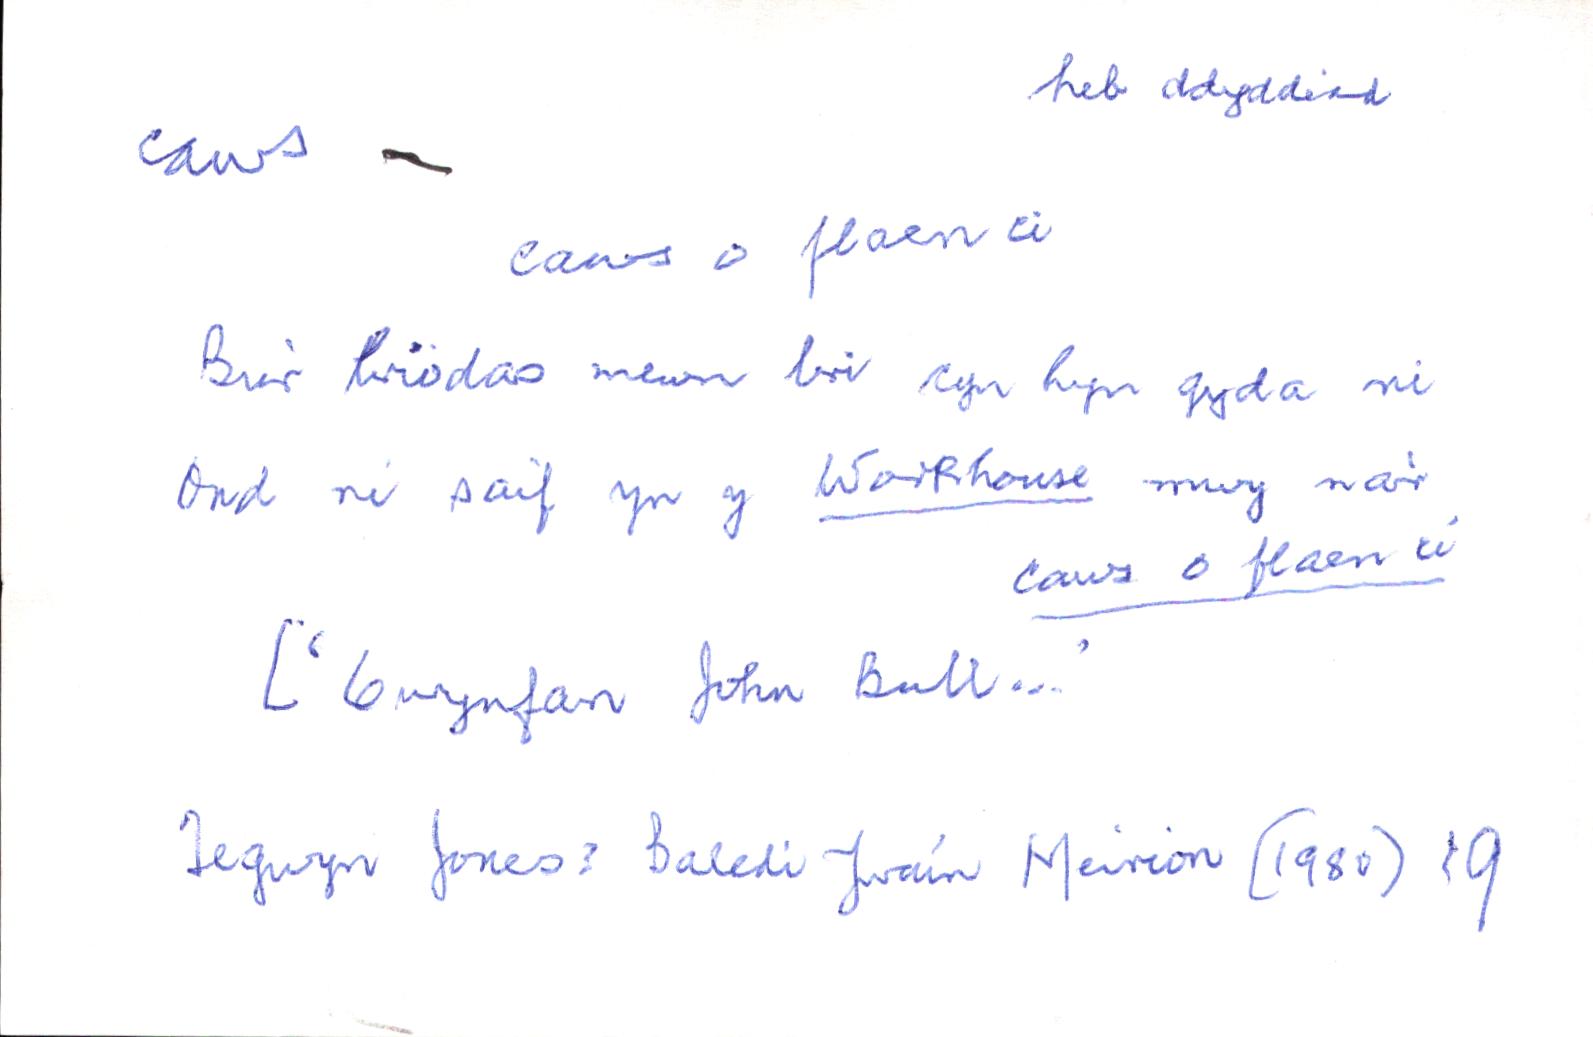 heb ddyddiad
caws —
caws o flaen ci
Bu'r briodas mewn bri cyn hyn gyda ni
Ond ni saif yn y Workhouse mwy na'r
caws o flaen ci
[‘Gwynfan John Bull...’
Tegwyn Jones: Baledi Ywain Meirion (1980) 19